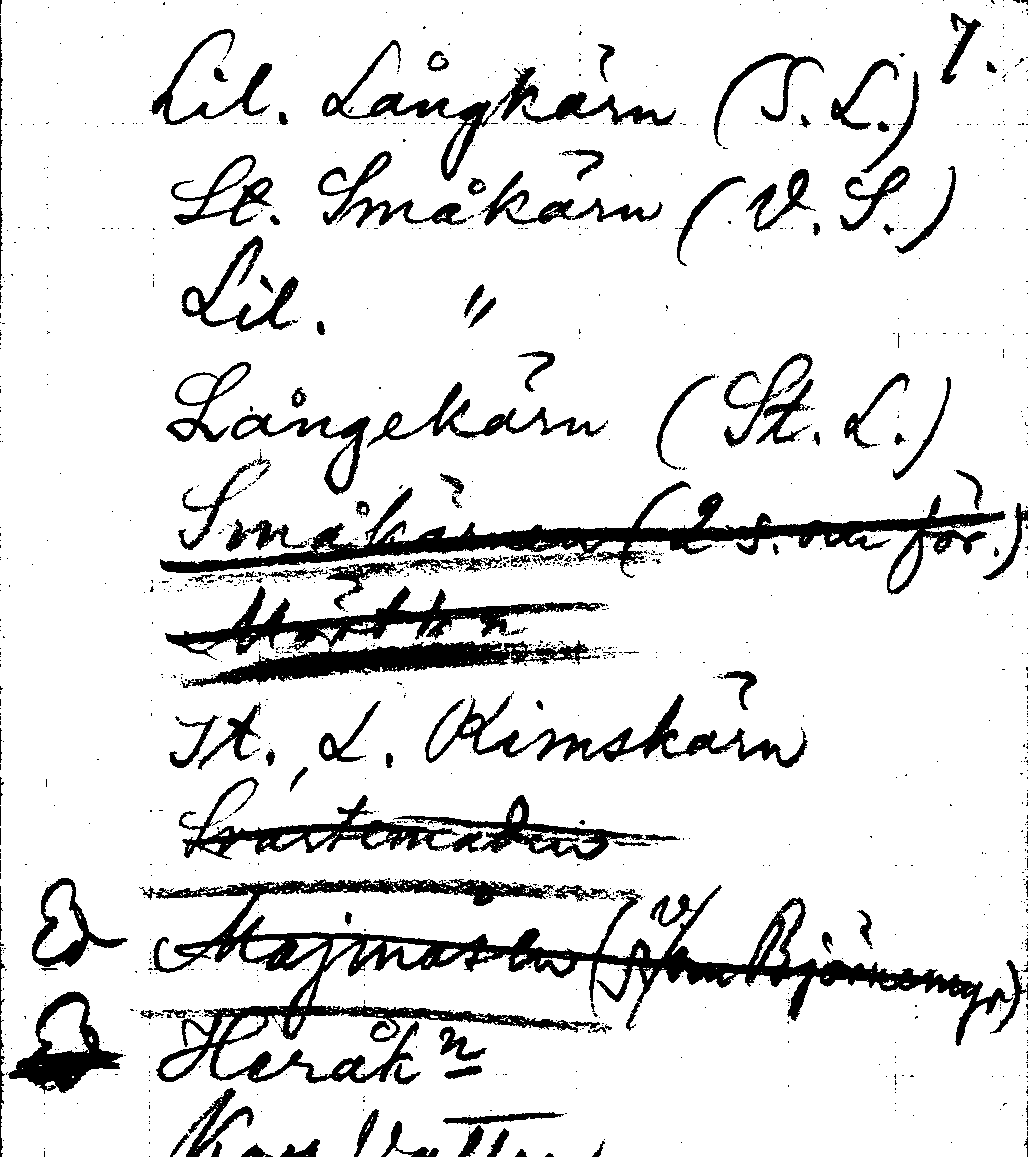 7.
Lil. Långkärn (S. L.)
St. Småkärn (V. S.)
Lil. "
Långekärn (St. L.)
Småkärnen (2 s. om för.)
St., L. Kimskärn
Svartemaden
Ed Majmåsen (v/ Björnemyr)
Ed Heråkn